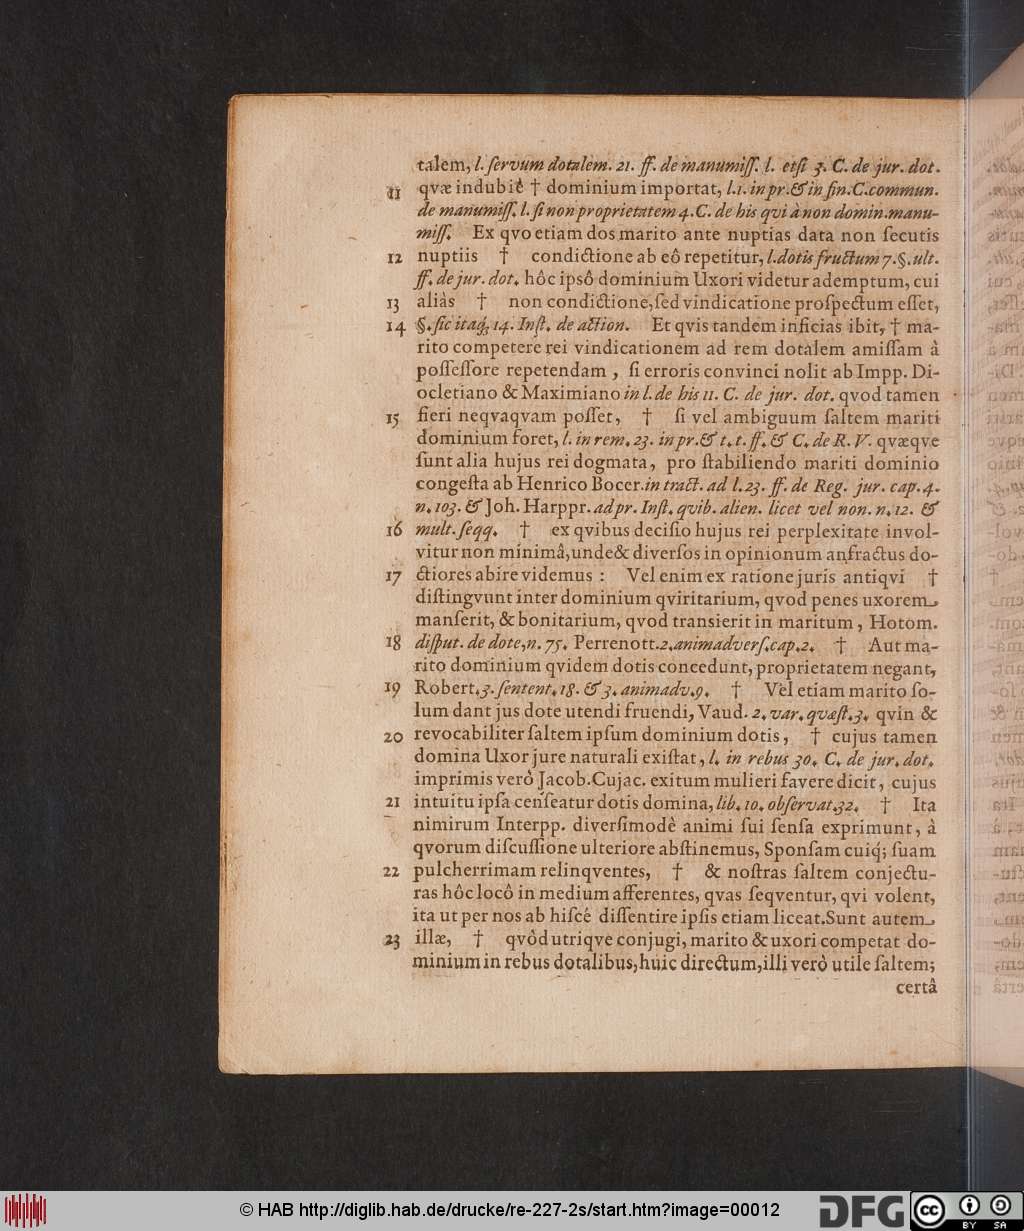 talem, l. ſervum dotalem. 21. ff. de manumiſſ. l. etſi 3. C. de jur. dot.
11 qvæ indubiè † dominium importat, l.1. in pr. & in fin. C. commun.
de manumiſſ. l. ſi non proprietatem 4. C. de his qvi à non domin. manu-
miſſ. Ex qvo etiam dos marito ante nuptias data non ſecutis
12 nuptiis † condictione ab eô repetitur, l. dotis fructum 7. §. ult.
ff. de jur. dot. hôc ipsô dominium Uxori videtur ademptum, cui
13 aliàs † non condictione, ſed vindicatione proſpectum eſſet,
14 §. ſic itaq; 14. Inſt. de action. Et qvis tandem inficias ibit, † ma-
rito competere rei vindicationem ad rem dotalem amiſſam à
poſſeſſore repetendam, ſi erroris convinci nolit ab Impp. Di-
ocletiano & Maximiano in l. de his 11. C. de jur. dot. qvod tamen
15 fieri neqvaqvam poſſet, † ſi vel ambiguum ſaltem mariti
dominium foret, l. in rem. 23. in pr. & t. t. ff. & C. de R. V. qvæqve
ſunt alia hujus rei dogmata, pro ſtabiliendo mariti dominio
congeſta ab Henrico Bocer. in tract. ad l. 23. ff. de Reg. jur. cap. 4.
n. 103. & Joh. Harppr. ad pr. Inſt. qvib. alien. licet vel non. n. 12. &
16 mult. ſeqq. † ex qvibus deciſio hujus rei perplexitate invol-
vitur non minimâ, unde & diverſos in opinionum anfractus do-
17 ctiores abire videmus: Vel enim ex ratione juris antiqvi †
diſtingvunt inter dominium qviritarium, qvod penes uxorem
manſerit, & bonitarium, qvod transierit in maritum, Hotom.
18 diſput. de dote, n. 75. Perrenott. 2. animadverſ. cap. 2. † Aut ma-
rito dominium qvidem dotis concedunt, proprietatem negant,
19 Robert. 3. ſentent. 18. & 3. animadv. 9. † Vel etiam marito ſo-
lum dant jus dote utendi fruendi, Vaud. 2. var. qvæſt. 3. qvin &
20 revocabiliter ſaltem ipſum dominium dotis, † cujus tamen
domina Uxor jure naturali exiſtat, l. in rebus 30. C. de jur. dot.
imprimis verò Jacob. Cujac. exitum mulieri favere dicit, cujus
21 intuitu ipſa cenſeatur dotis domina, lib. 10. obſervat. 32. † Ita
nimirum Interpp. diverſimodè animi ſui ſenſa exprimunt, à
qvorum diſcuſſione ulteriore abſtinemus, Sponſam cuiq; ſuam
22 pulcherrimam relinqventes, † & noſtras ſaltem conjectu-
ras hôc locô in medium afferentes, qvas ſeqventur, qvi volent,
ita ut per nos ab hiſce diſſentire ipſis etiam liceat. Sunt autem
23 illæ, † qvôd utriqve conjugi, marito & uxori competat do-
minium in rebus dotalibus, huic directum, illi verò utile ſaltem;
certâ
© HAB http://diglib.hab.de/drucke/re-227-2s/start.htm?image=00012
DFG
cc BY SA